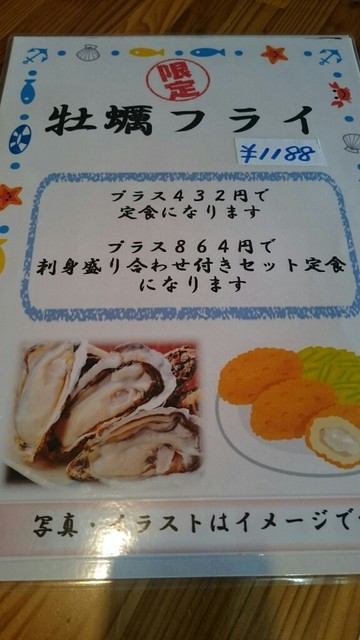 限定
牡蠣フライ
¥1188
プラス432円で
定食になります
プラス864円で
刺身盛り合わせ付きセット定食
になります
写真・イラストはイメージで